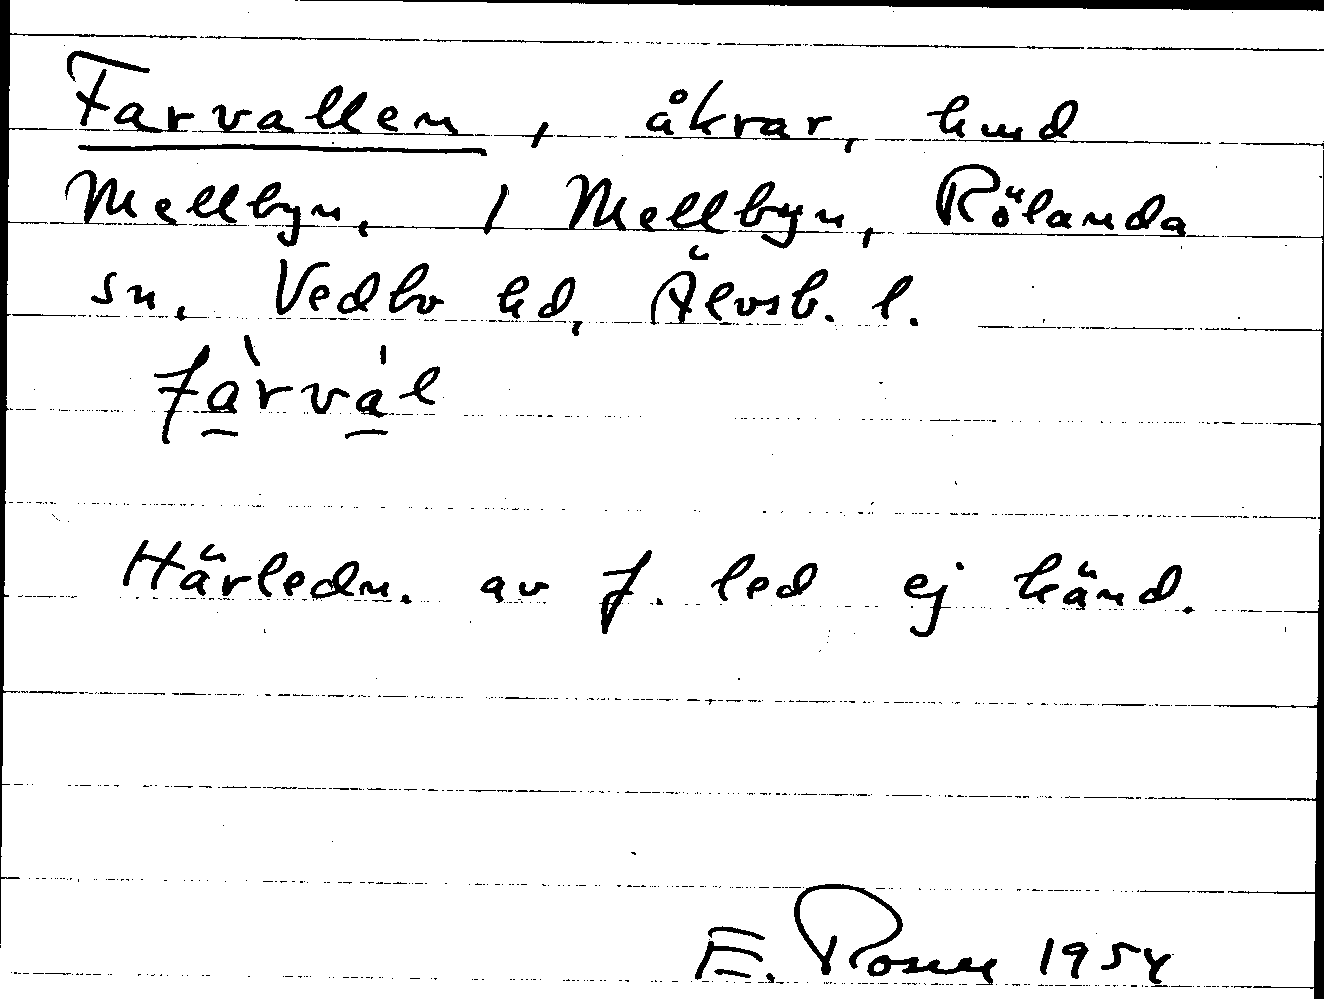 Farvallen, åkrar, hmd
Mellbyn, 1 Mellbyn, Rölanda
sn. Vedbo hd, Älvsb. l.
fàrvál
Härledn. av f. led ej känd.
E. 1954